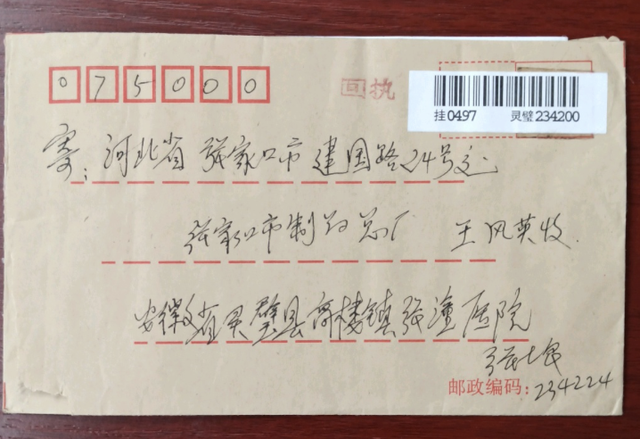 075000
回执
挂0497 灵璧234200
寄:河北省张家口市建国路24号
张家口市制 总厂 王风英收
安徽省灵璧县高楼镇张潼医院
邮政编码:234224